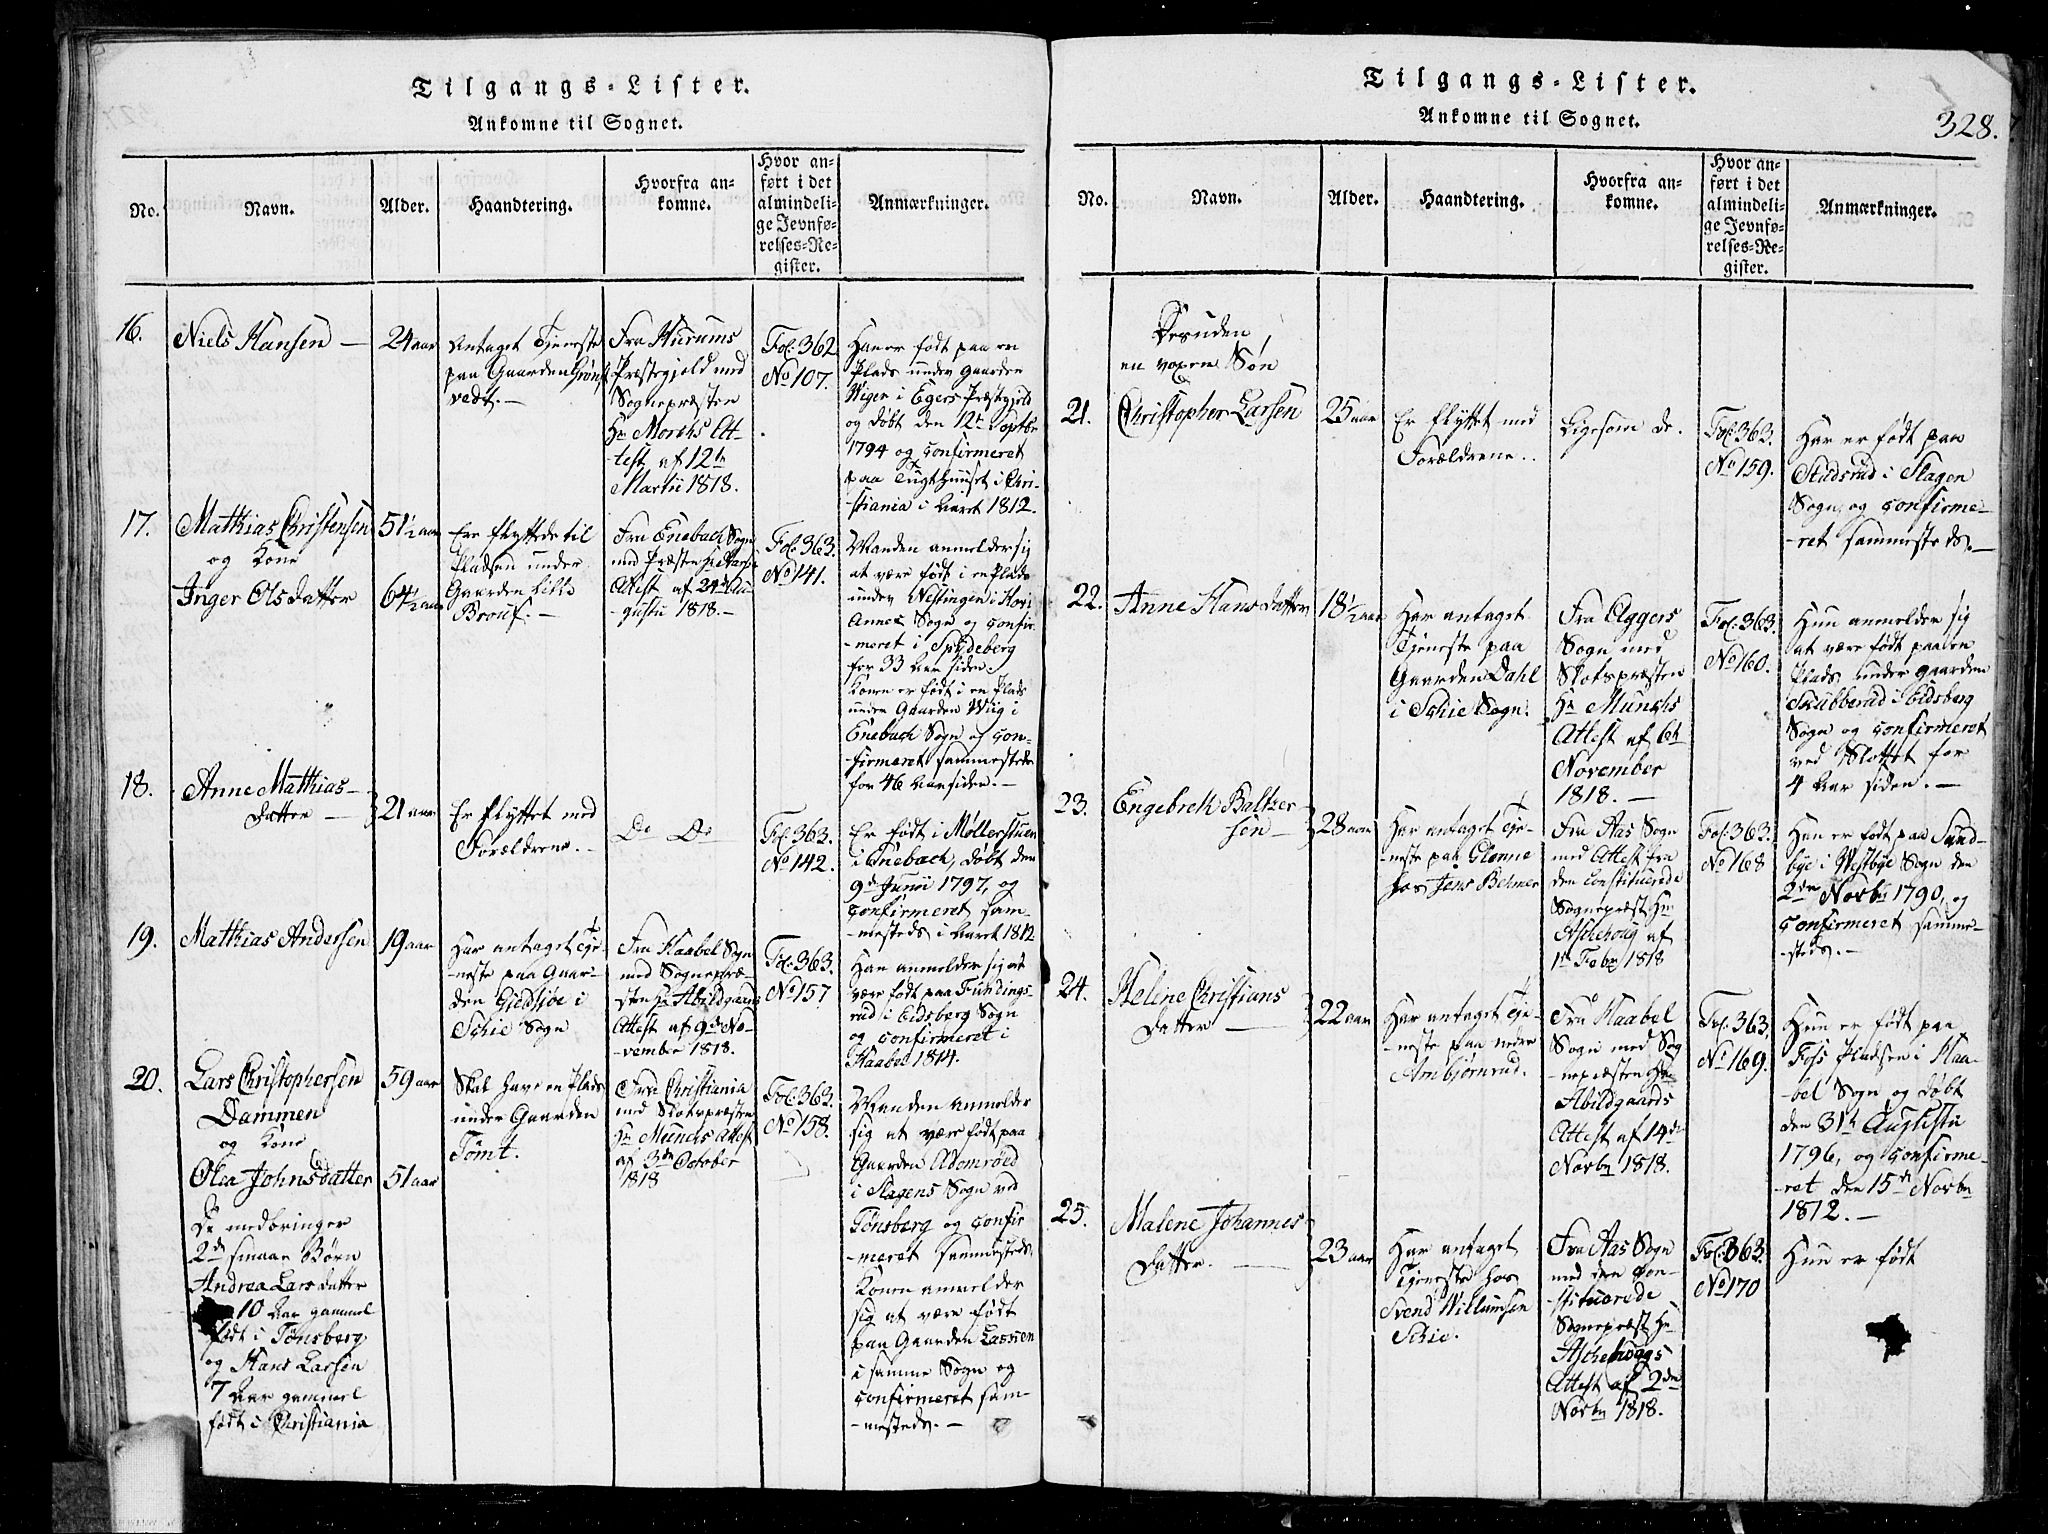 Tilgangs-Lister.
Ankomne til Sognet.
No.
Navn.
Alder.
Haandtering.
Hvorfra an-
komne.
Hvor an-
ført i det
almindeli-
ge Jevnfø-
relses-Re-
gister.
Anmærkninger.
16.
Niels Hansen —
24 aar
Antaget Tjeneste
paa Gaarden Grøn-
vedt. —
Fra Hurums
Præstegjeld med
Sognepræsten
Hr Morchs At-
test af 12te
Martii 1818.
Fol: 362
No 107.
Han er født paa en
Plads under Gaarden
Wigen i Egers Præstgjeld
og døbt den 12te Septbr
1794 og confirmeret
paa Tugthuuset i Chri-
stiania i Aaret 1812.
17.
Matthias Christensen
og Kone
Inger Olsdatter
51½ aar
64½ aar
Ere flyttede til
Pladsen under
Gaarden Lille
Fra Enebach Sogn
med Præsten
Attest af 24de Au-
gusti 1818. —
Fol: 363.
No 141.
Manden anmelder sig
at være født i en Plads
under Nestingen i Hovi
Annex Sogn og confir-
-meret i Spydeberg
for 33 Aar siden.
Konen er født i en Plads
under Gaarden Wiig i
Enebach Sogn og con-
firmeret sammesteds
for 46 Aar siden. —
18.
Anne Mathias-
datter —
21 aar
Er flyttet med
Forældrene. —
Do Do
Fol: 363.
No 142.
Er født i Møllerstuen
i Enebach, døbt den
9de Junii 1797, og
confirmeret sam-
-mesteds i Aaret 1812
19.
Matthias Andersen
19 aar
Har antaget Tje-
neste paa Gaar-
den Giedsjøe i
Schie Sogn
Fra Haabel Sogn
med Sognepræ-
sten Hr Abildgaards
Attest af 9de No-
-vember 1818.
Fol: 363.
No 157
Han anmelder sig at
være født paa Fundings-
rud i Eidsberg Sogn
og confirmeret i
Haabel 1814.
20.
Lars Christophersen
Dammen
og Kone
Olea Johnsdatter
De medbringer
2de smaae Børn
Andrea Larsdatter
10 Aar gammel
født i Tønsberg
og Hans Larsen
7 Aar gammel
født i Christiania
59 aar
51 aar
Skal have en Plads
under Gaarden
Tømt.
Fra Christiania
med Slotspræsten
Hr Munchs Attest
af 3de October
1818
Fol: 363.
No 158.
Manden anmelder
sig at være født paa
Gaarden Adomrøed
i Slagens Sogn ved
Tønsberg og confir
-meret sammesteds.
Konen anmelder
sig at være født
paa Gaarden Lassen
i samme Sogn og
confirmeret sam-
-mesteds. —
Tilgangs-Lister.
Ankomne til Sognet.
328.
No.
Navn.
Alder.
Haandtering.
Hvorfra an-
komne.
Hvor an-
ført i det
almindeli-
ge Jevnfø-
relses-Re-
gister.
Anmærkninger.
Desuden
en voxen Søn
21.
Christopher Larsen
25 aar
Er flyttet med
Forældrene.
Ligesom de.
Fol: 363.
No 159.
Har er født paa
Studsrud i Slagen
Sogn, og confirme-
-ret sammesteds. —
22.
Anne Hansdatter
18½ aar
Har antaget
Tjeneste paa
Gaarden Dahl
i Schie Sogn.
Fra Aggers
Sogn med
Slotspræsten
Hr Munchs
Attest af 6te
November
1818. —
Fol: 363.
No 160.
Hun anmelder sig
at være født paa en
Plads under Gaarden
Skubberud i Eidsberg
Sogn og confirmeret
ved Slottet for
4 Aar siden. —
23.
Engebreth Baltzer-
sen —
28 aar
Har antaget Tje-
-neste paa Glenne
hos Jens Behmer
Fra Aas Sogn
med Attest fra
den constituerede
Sognepræst Hr
Aschehoug af
1ste Febr 1818
Fol: 363.
No 168
Han er født paa Sund-
bye i Westbye Sogn den
2den Novbr 1790, og
confirmeret samme-
-steds. —
24.
Helene Christians
datter —
22 aar
Har antaget Tje-
-neste paa nedre
Ambjørnrud.
Fra Haabel
Sogn med Sog
-nepræsten Hr
Abildgaards
Attest af 14de
Novbr 1818.
Fol: 363,
No 169.
Hun er født paa
Foss Pladsen i Haa-
-bel Sogn og døbt
den 31te Augusti
1796, og confirme-
-ret den 15de Novbr
1812. —
25.
Malene Johannes
datter. —
23 aar
Har antaget
Tjeneste hos
Svend Willumsen
Schie.
Fra Aas Sogn
med den con-
-stituerede
Sognepræst Hr
Aschehougs
Attest af 2den
Novbr 1818.
Fol: 363
No 170
Hun er født